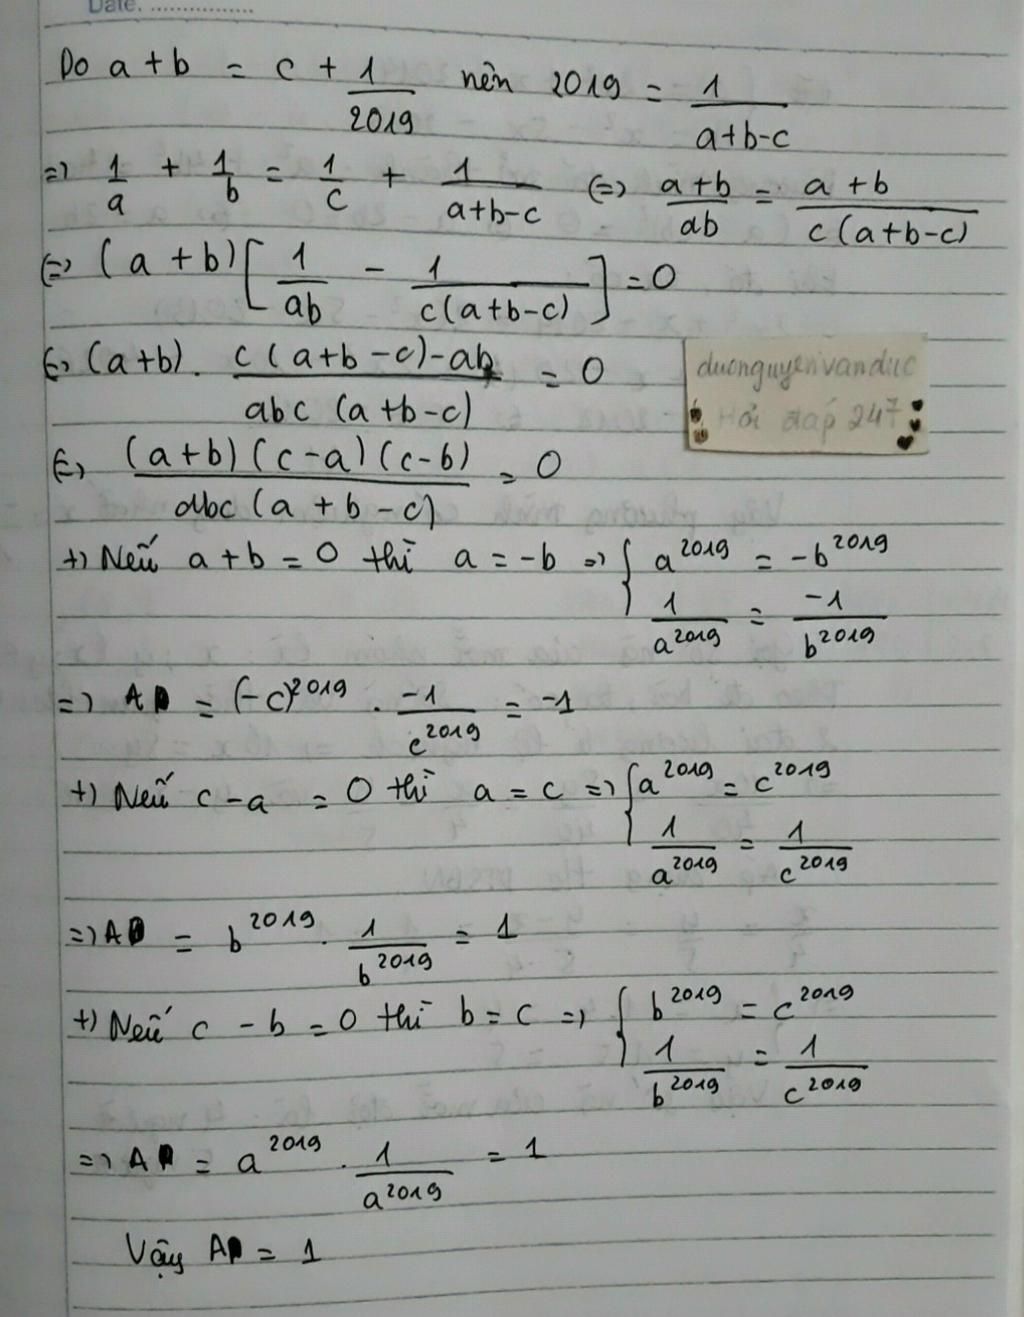 Date. ................
Do a+b = c + 1/2019 nên 2019 = 1/(a+b-c)
=> 1/a + 1/b = 1/c + 1/(a+b-c) (=) (a+b)/ab = (a+b)/(c(a+b-c))
(=) (a+b)[1/ab - 1/(c(a+b-c))] = 0
(=) (a+b). (c(a+b-c)-ab)/(abc(a+b-c)) = 0
ducnguyenvanduc
Hỏi đáp 247
(=) ((a+b)(c-a)(c-b))/(abc(a+b-c)) = 0
+) Nếu a+b=0 thì a=-b => { a^2019 = -b^2019
1/a^2019 = -1/b^2019
=> A = (-c)^2019 . -1/c^2019 = -1
+) Nếu c-a = 0 thì a=c => { a^2019 = c^2019
1/a^2019 = 1/c^2019
=> A = b^2019 . 1/b^2019 = 1
+) Nếu c-b=0 thì b=c => { b^2019 = c^2019
1/b^2019 = 1/c^2019
=> A = a^2019 . 1/a^2019 = 1
Vậy A = 1